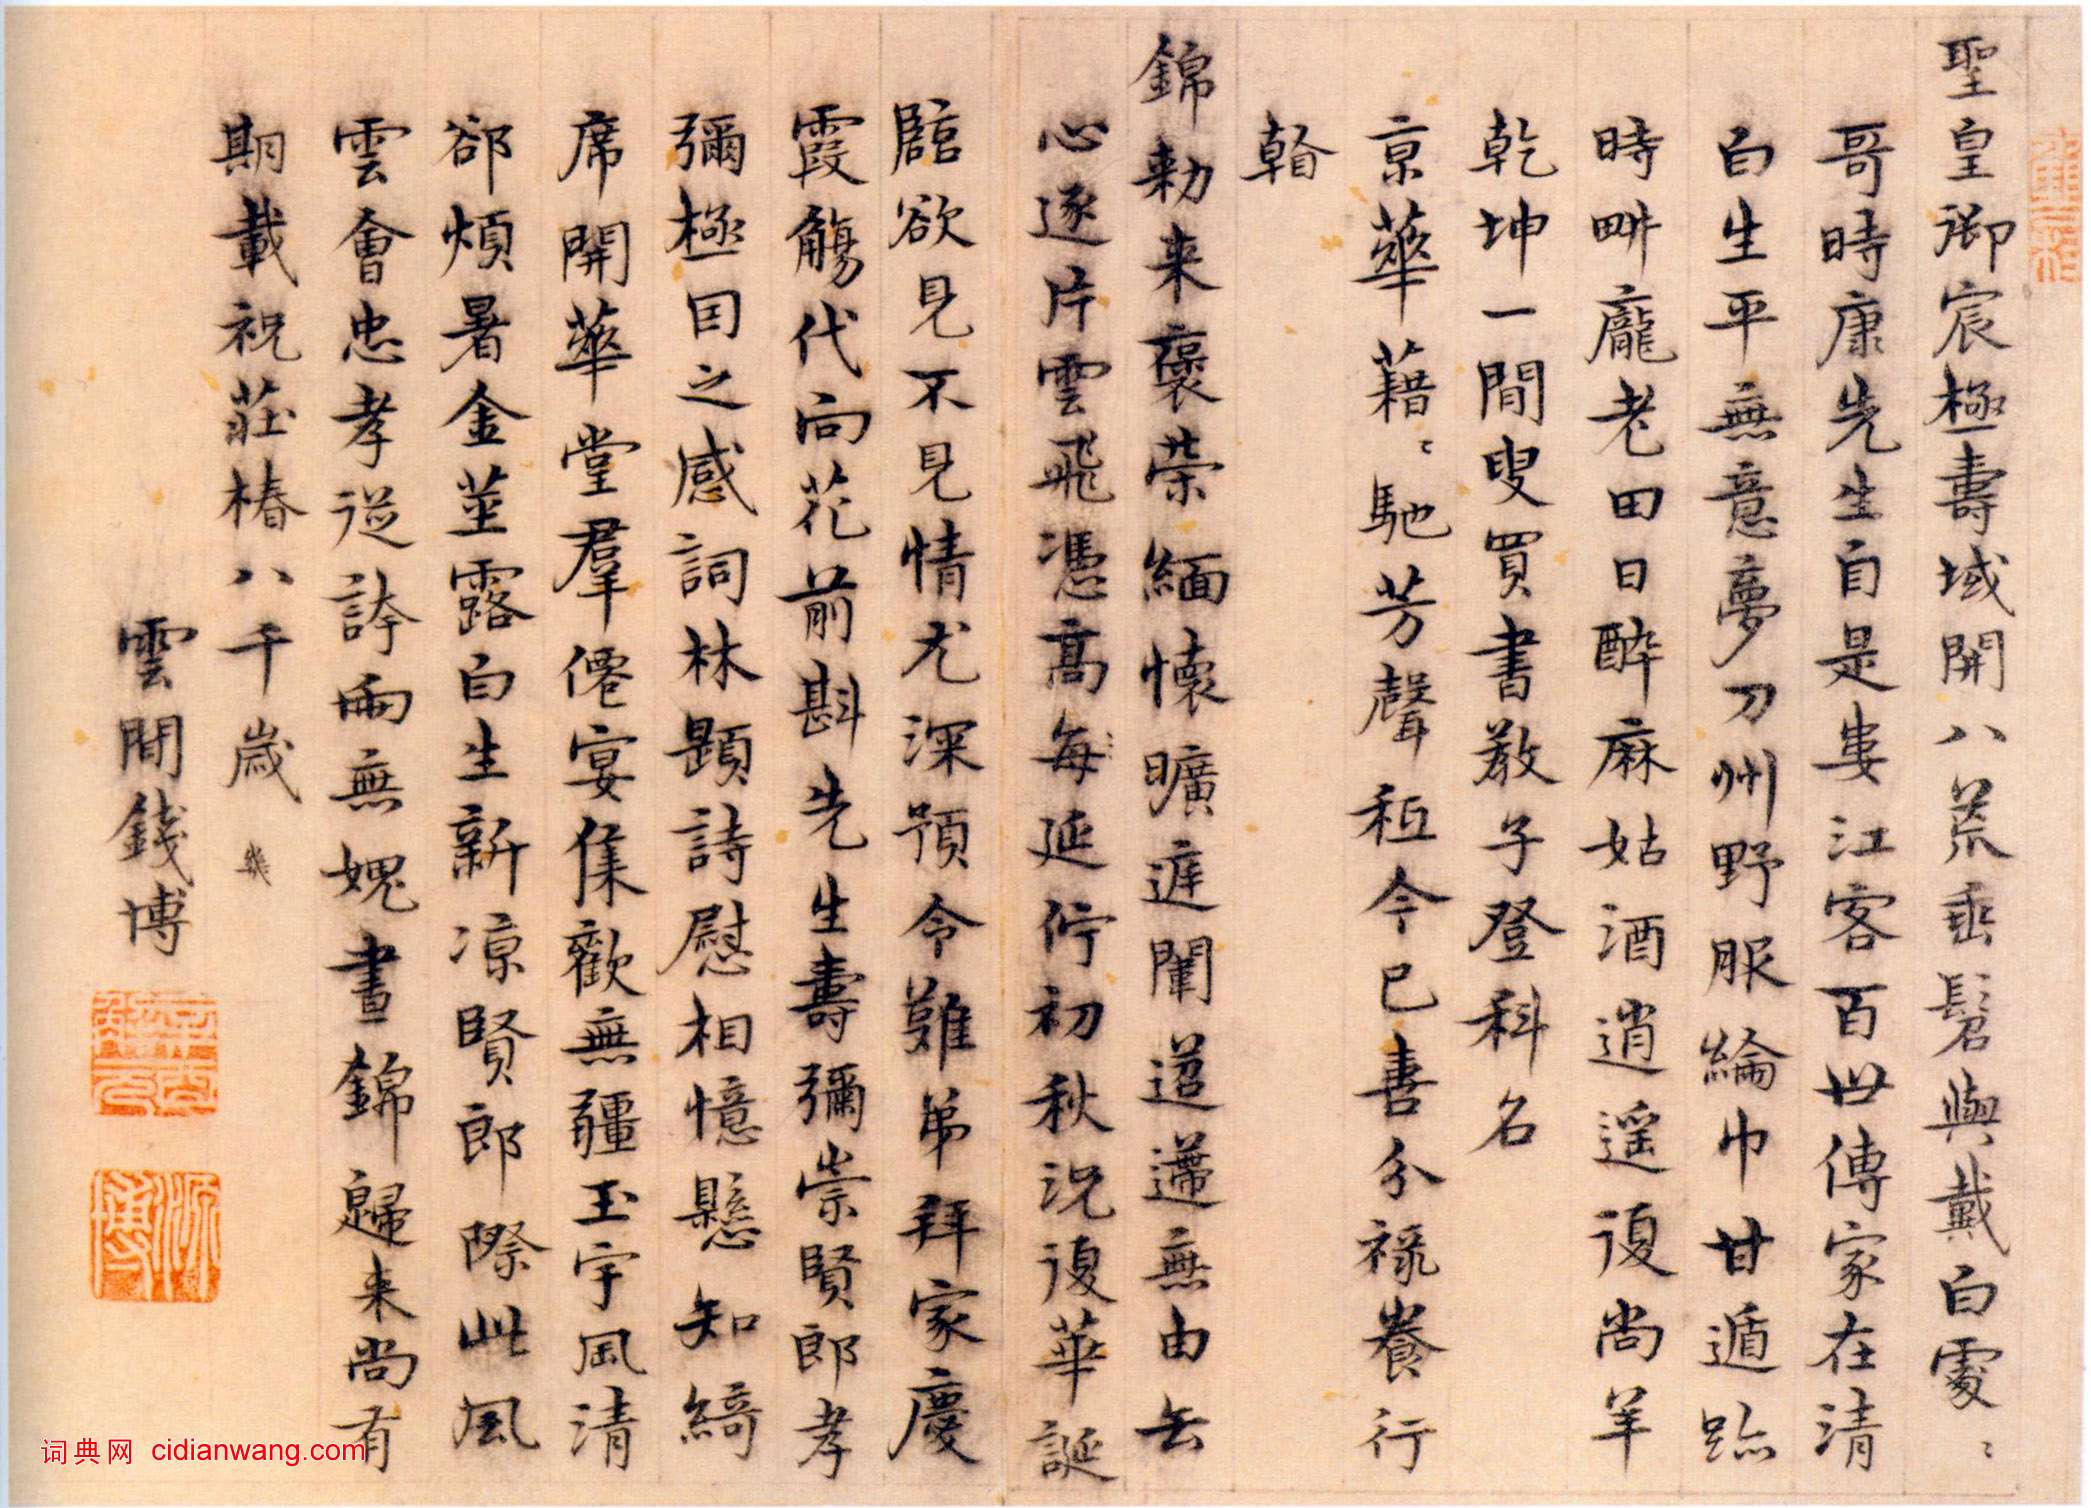 聖皇御宸極壽域開八荒垂髫與戴白處〻
哥時康先生自是婁江客百世傳家在清
白生平無意夢刀州野服綸巾甘遁跡
時畊龐老田日醉麻姑酒逍遥復尚羊
乾坤一閒叟買書教子登科名
京華藉〻馳芳聲秪今已喜分禄養行
錦勅来褒荣緬懷曠遅闈迢遰無由缶
心逐片雲飛憑髙每延佇初秋況復華誕
臨欲見不見情尤深預令難弟拜家慶
霞觴代向花前斟先生壽彌崇賢郎孝
彌極因之感詞林題詩慰相憶懸知綺
席開華堂羣僊宴集歡無疆玉宇風清
郤煩暑金莖露白生新凉賢郎際此風
雲會忠孝從誇兩無媿晝錦歸来尚有
期載祝莊椿八千歲
雲間錢博
词典网 cidianwang.com